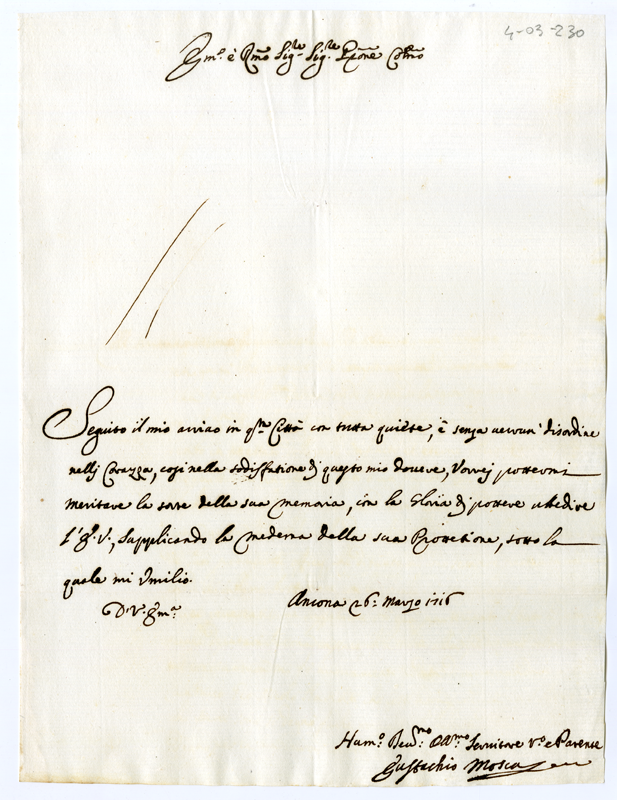 4-03-230
Em.º è Rmo Sig.re Sig.re Prone Colmo
Seguito il mio arriuo in q.sta Città con tutta quiete, è senza ueruun disordine
nellj Corazza, così nella sodisfatione dj questo mio douere, Vorrej potteromi
meritare la sorte della sua memoria, con la Gloria dj pottere ubbedire
l'E. V., supplicando la medema della sua Prottetione, sotto la
quale mi Vmilio.
D. V. Em.a
Ancona 26: Marzo 1716
Hum.º Deu.mo Obl.mo Seruitore V.º e Parente
Eustachio Mosca